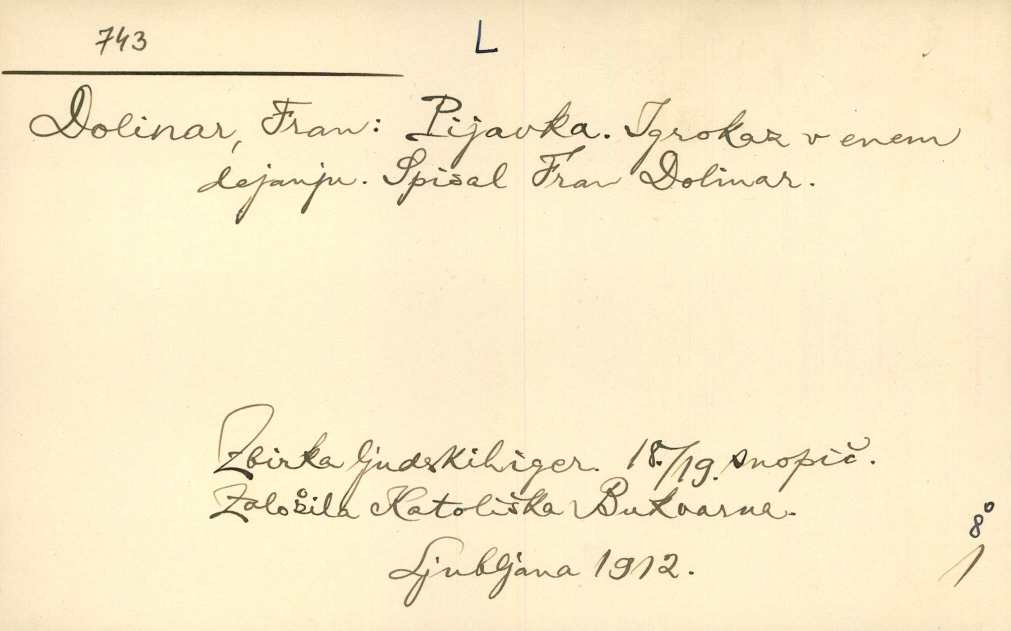 743
L
Dolinar, Fran: Pijavka. Igrokaz v enem
dejanju. Spisal Fran Dolinar.
Zbirka ljudskih iger. 18./19. snopič.
Založila Katoliška Bukvarna.
8°
Ljubljana 1912.
1